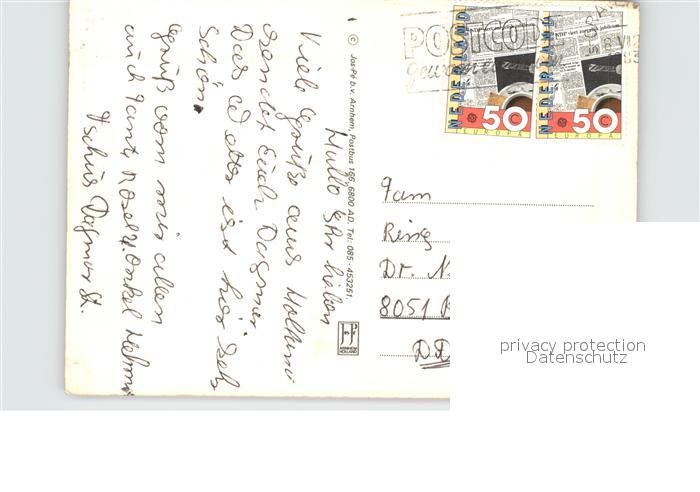 Hallo Ihr Lieben
Viele Grüße aus Holland
sendet Euch Dagmar.
Das Wetter ist hier sehr
schön.
Grüß von mir allen
auch Tante Rosel u. Onkel Helmut
Tschüß Dagmar St.
© Jos-Pé b.v. Arnhem, Postbus 166, 6800 AD, Tel: 085-453251.
JosPé
ARNHEM
HOLLAND
POSTCODE
NEDERLAND
50
EUROPA
NEDERLAND
50
EUROPA
Fam
Ring
Dr. N
8051
DD
privacy protection
Datenschutz